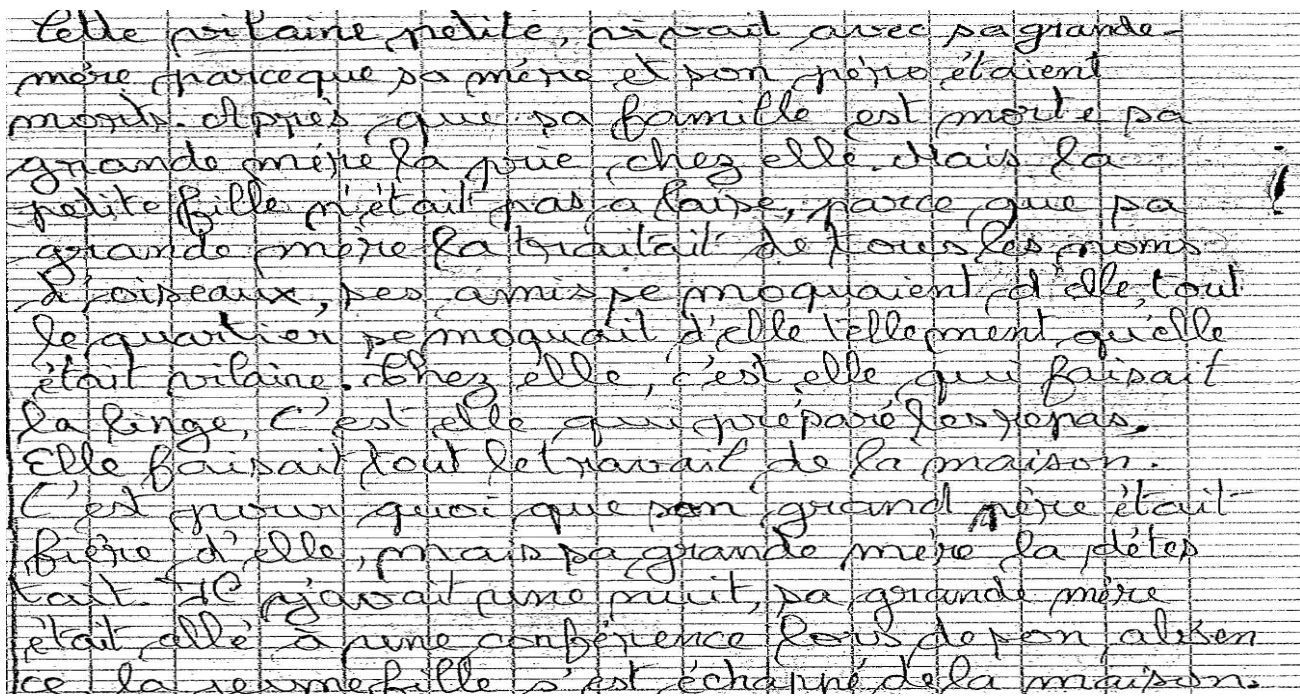 Cette vilaine petite, vivait avec sa grande-
mère parceque sa mère et son père étaient
morts. Après que sa famille est morte sa
grande mère la prie chez elle. Mais la
petite fille n'était pas a laise, parce que sa
grande mère la traitait de tous les noms
d'oiseaux, ses amis se moquaient d'elle, tout
le quartier se moquait d'elle tellement qu'elle
était vilaine. Chez elle, c'est elle qui faisait
la linge, C'est elle qui préparé les repas.
Elle faisait tout le travail de la maison.
C'est pour quoi que son grand père était
fière d'elle, mais sa grande mère la détes
tait. Il y'avait une nuit, sa grande mère
était allé à une conférence lors de son absen
ce la jeune fille s'est échappé de la maison.